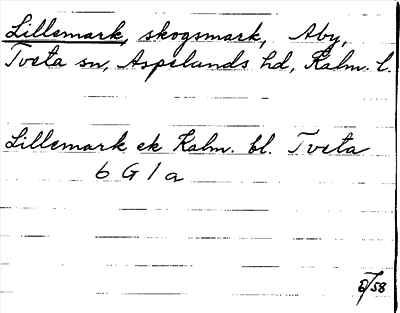 Lillemark, skogsmark, Åby,
Tveta sn, Aspelands hd, Kalm. l.
Lillemark ek Kalm. bl. Tveta
6 G 1 a
/58